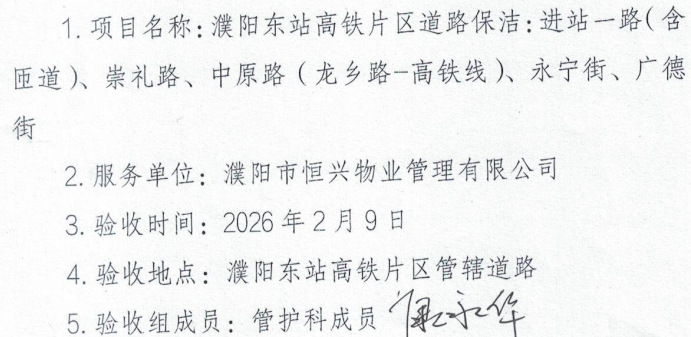 1.项目名称:濮阳东站高铁片区道路保洁:进站一路(含
匝道)、崇礼路、中原路(龙乡路-高铁线)、永宁街、广德
街
2.服务单位:濮阳市恒兴物业管理有限公司
3.验收时间:2026年2月9日
4.验收地点:濮阳东站高铁片区管辖道路
5.验收组成员:管护科成员